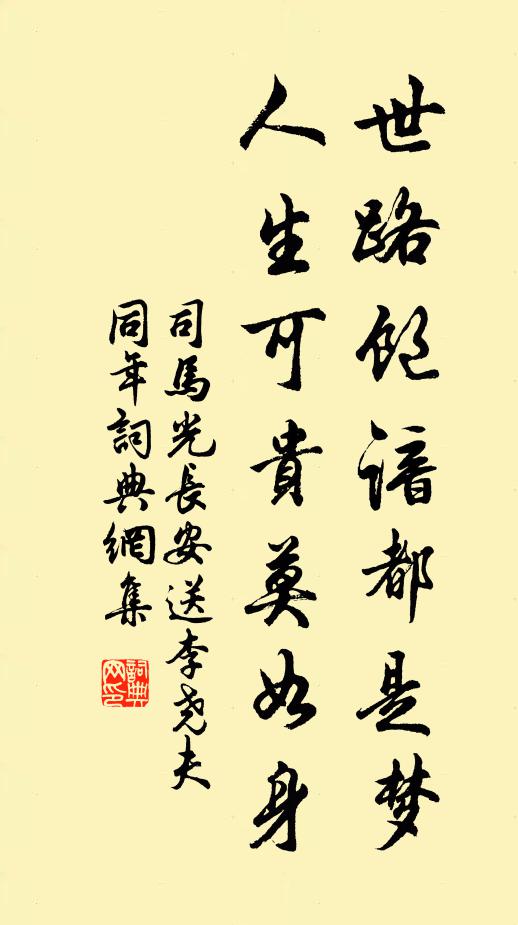 世路飽諳都是梦
人生可貴莫如身
司馬光長安送李尧夫
同年詞典網集
詞典网印